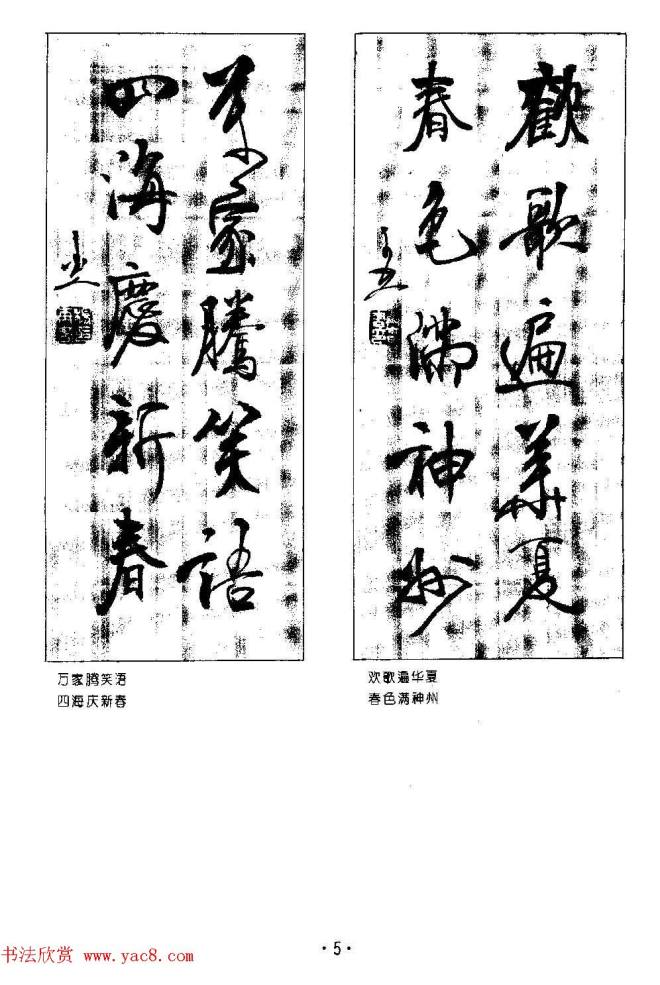 歡歌遍華夏
春色滿神州
萬家騰笑語
四海慶新春
万家腾笑语
四海庆新春
欢歌遍华夏
春色满神州
·5·
书法欣赏 www.yac8.com